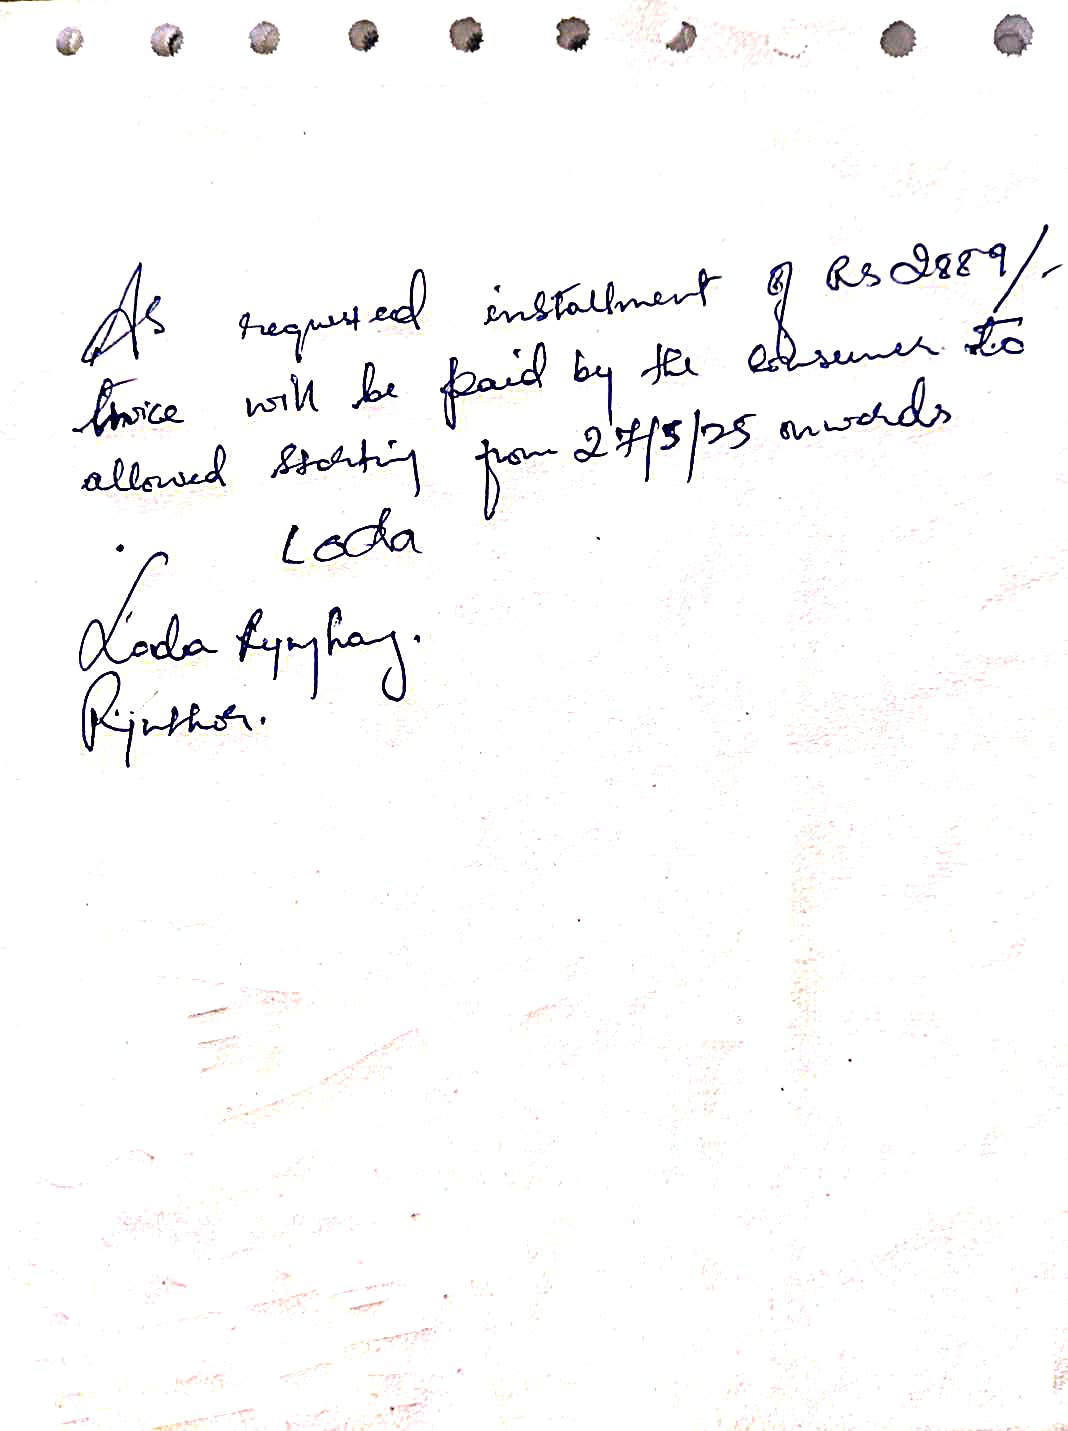 As requested installment of Rs 2889/-
twice will be paid by the consumer to
allowed starting from 27/5/25 onwards
Loda
Loda Rynghang.